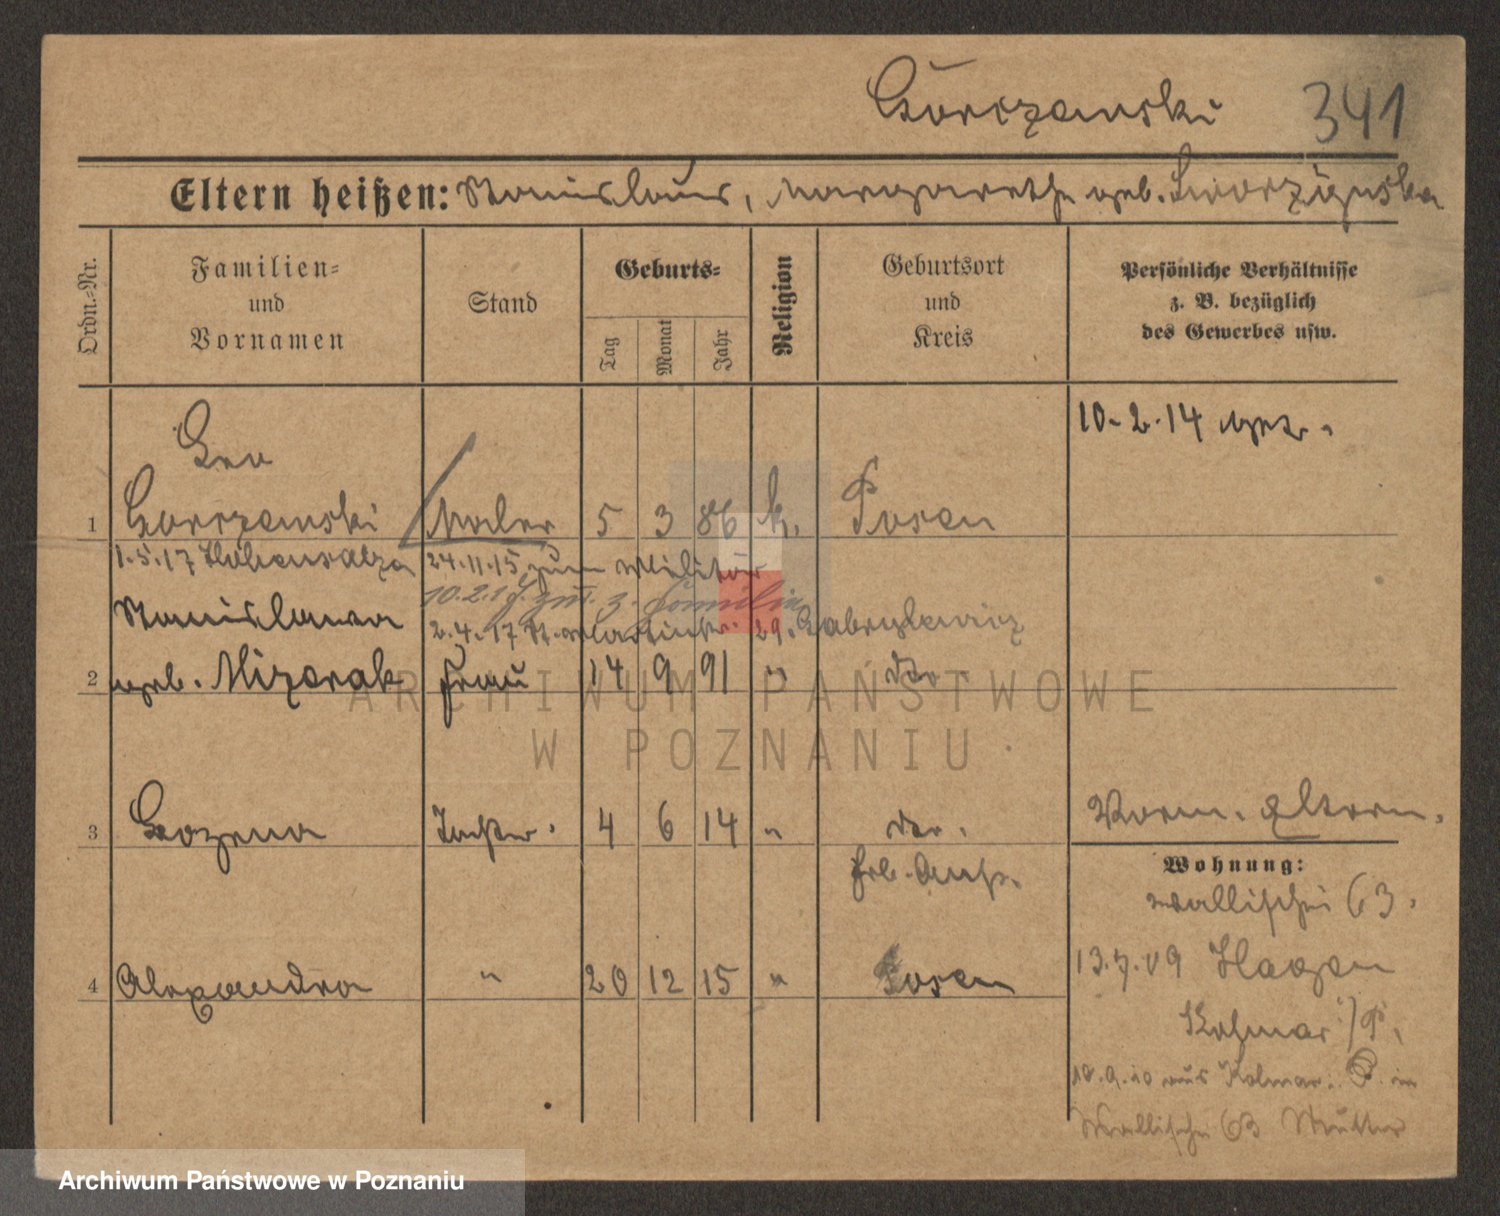 Górczewski 341
Eltern heißen: Stanislaus, Margarethe geb.
Ordn.=Nr.
Familien=
und
Vornamen
Stand
Geburts=
Tag
Monat
Jahr
Religion
Geburtsort
und
Kreis
Persönliche Verhältnisse
z. B. bezüglich
des Gewerbes usw.
10.2.14
Leo
1 Maler 5 3 86 k. Posen
1.5.17 Hohensalza 24.11.15 zum Militär
10.2.17 z. Familie
2.4.17 St. Martinstr. 29.
Stanislawa
2 geb. Mizerak Frau 14 9 91 " do.
Vorm. Eltern.
3 Bozena Tochter. 4 6 14 " do.
Wohnung:
Wallischei 63.
4 Alexandra " 20 12 15 " Posen
13.7.09 Hagen
Kolmar i/P.
10.9.10 aus Kolmar i. P. in
Wallischei 63 Mutter
ARCHIWUM PAŃSTWOWE
W POZNANIU
Archiwum Państwowe w Poznaniu